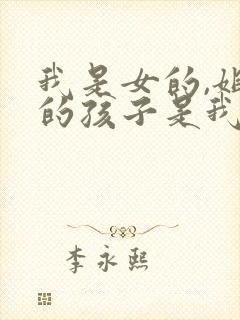 我是女的,姐
的孩子是我
李永熙